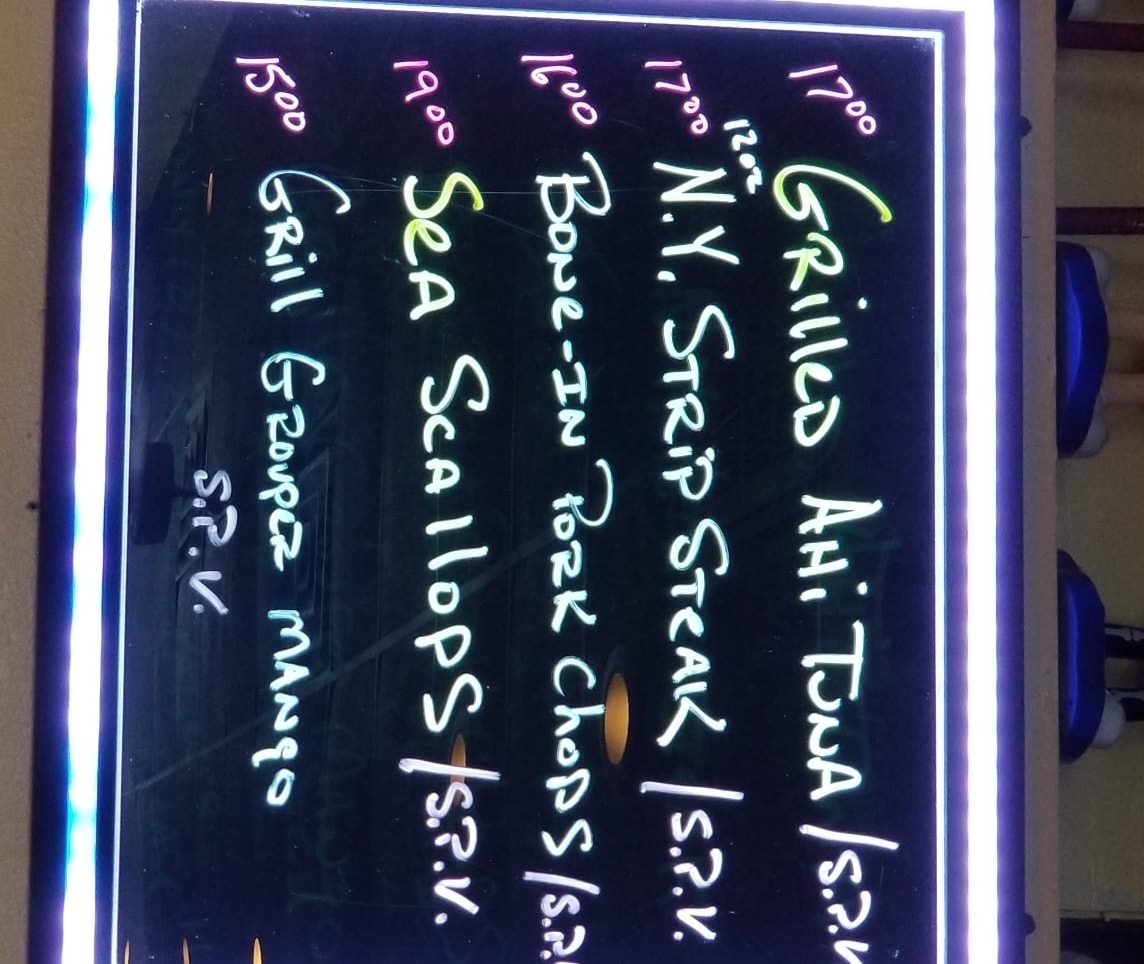 1700 GRilled AHi TUNA /S.P.V
1700 12oz N.Y. STRIP STEAK /S.P.V.
1600 BONe-IN PORK ChOPS/S.P.
1900 SeA ScAllOPS/S.P.V.
1500 GRill GROUPER MANgO
S.P.V.